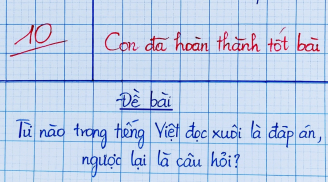 10
Con đã hoàn thành tốt bài
Đề bài
Từ nào trong tiếng Việt đọc xuôi là đáp án,
ngược lại là câu hỏi?